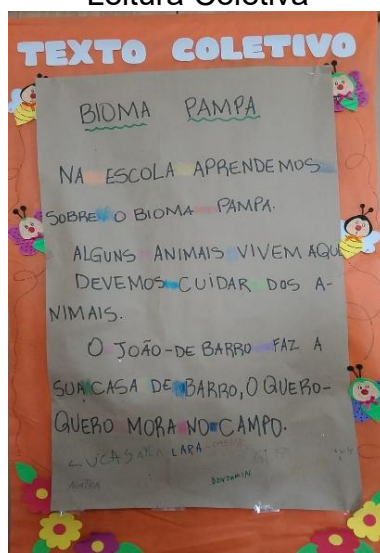 Leitura Coletiva
TEXTO COLETIVO
BIOMA PAMPA
NA ESCOLA APRENDEMOS
SOBRE O BIOMA PAMPA.
ALGUNS ANIMAIS VIVEM AQUI
DEVEMOS CUIDAR DOS A-
NIMAIS.
O JOÃO-DE BARRO FAZ A
SUA CASA DE BARRO, O QUERO-
QUERO MORA NO CAMPO.
LUCAS LARA
AGATHA BENJAMIN